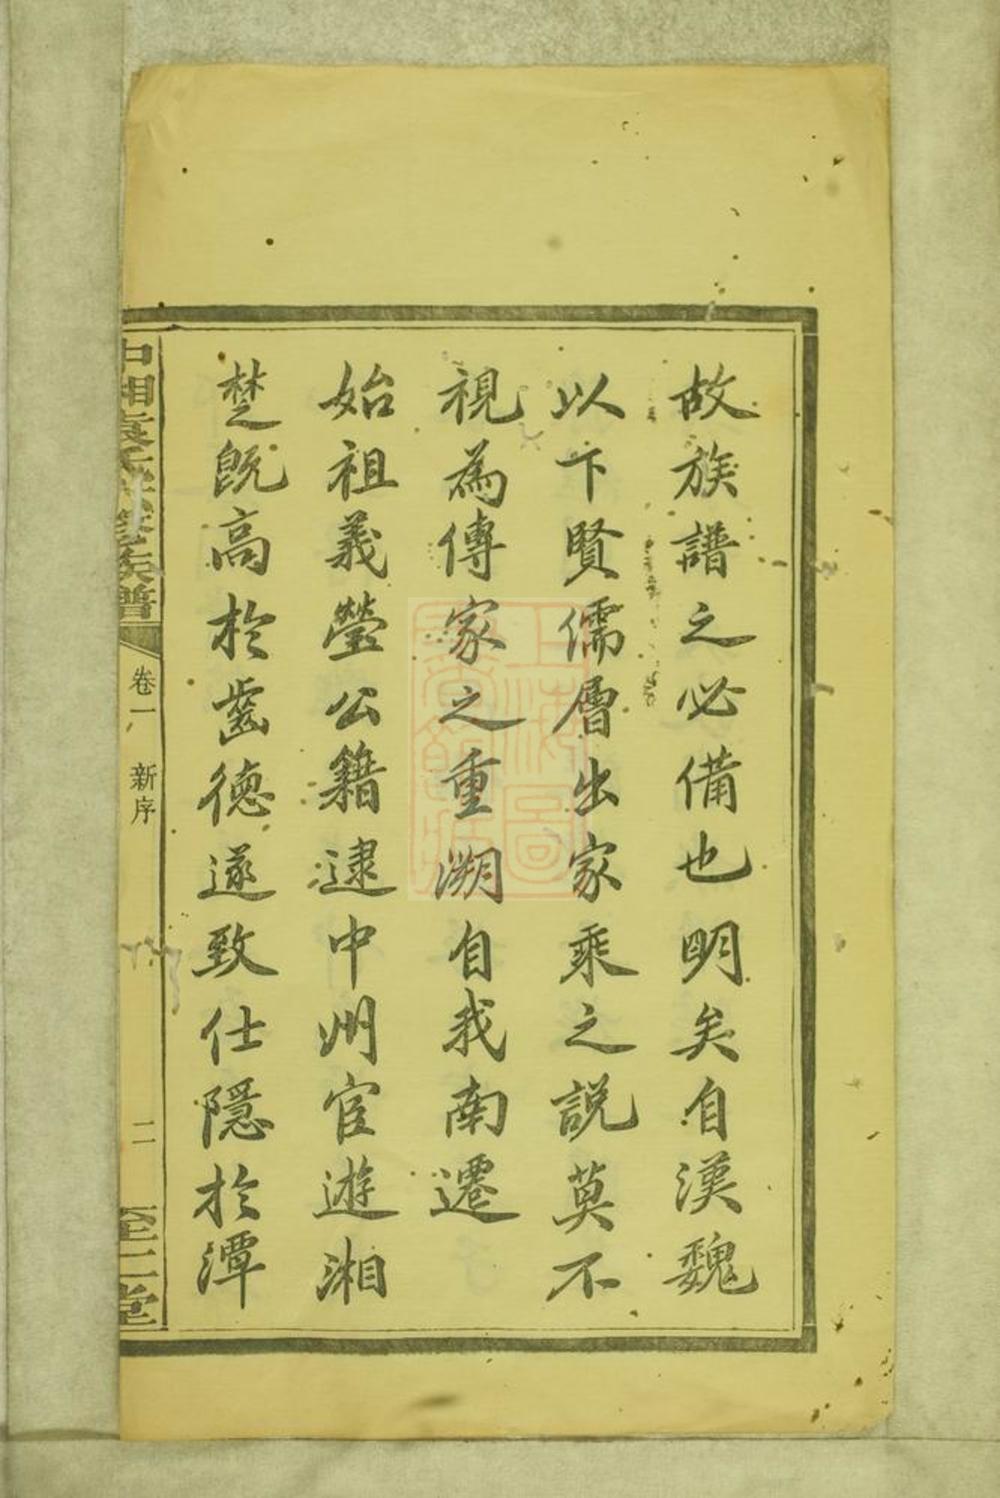 故族譜之必備也明矣自漢魏
以下賢儒層出家乘之説莫不
視為傳家之重溯自我南遷
始祖義瑩公籍逮中州宦遊湘
楚既高於齒德遂致仕隱於潭
中湘袁氏
族譜
卷一 新序
二
至仁堂